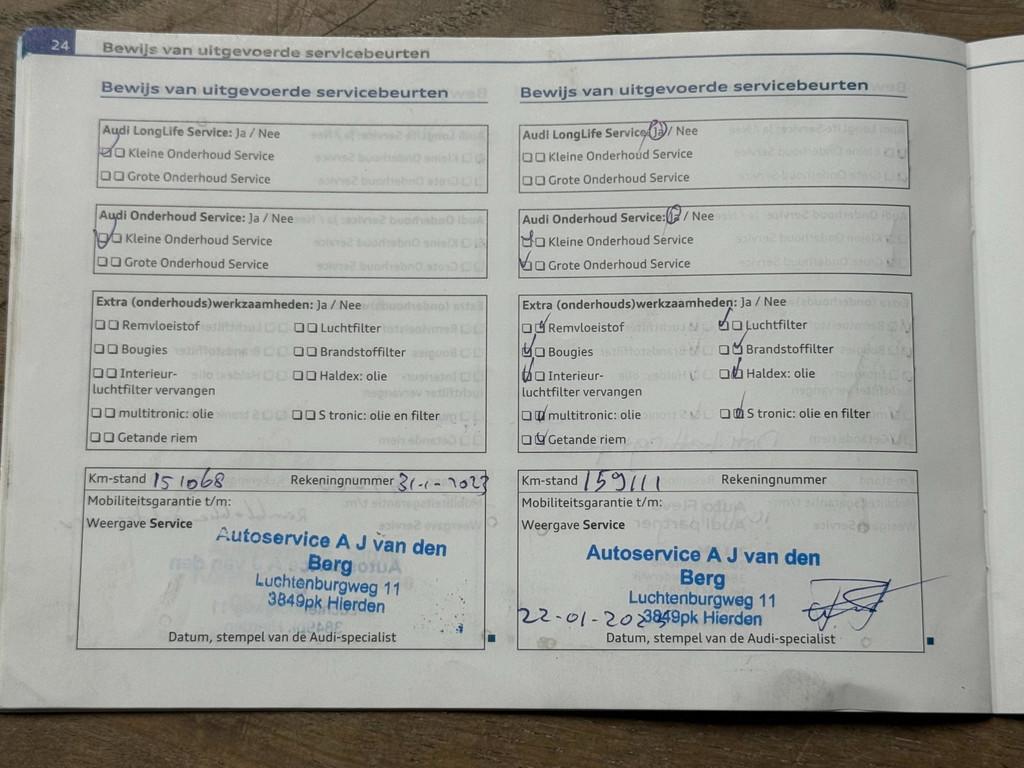 24 Bewijs van uitgevoerde servicebeurten
Bewijs van uitgevoerde servicebeurten
Audi LongLife Service: Ja / Nee
Kleine Onderhoud Service
Grote Onderhoud Service
Audi Onderhoud Service: Ja / Nee
Kleine Onderhoud Service
Grote Onderhoud Service
Extra (onderhouds)werkzaamheden: Ja / Nee
Remvloeistof Luchtfilter
Bougies Brandstoffilter
Interieur- Haldex: olie
luchtfilter vervangen
multitronic: olie S tronic: olie en filter
Getande riem
Km-stand 151068 Rekeningnummer 31-1-2023
Mobiliteitsgarantie t/m:
Weergave Service
Autoservice A J van den
Berg
Luchtenburgweg 11
3849pk Hierden
Datum, stempel van de Audi-specialist
Bewijs van uitgevoerde servicebeurten
Audi LongLife Service: Ja / Nee
Kleine Onderhoud Service
Grote Onderhoud Service
Audi Onderhoud Service: Ja / Nee
Kleine Onderhoud Service
Grote Onderhoud Service
Extra (onderhouds)werkzaamheden: Ja / Nee
Remvloeistof Luchtfilter
Bougies Brandstoffilter
Interieur- Haldex: olie
luchtfilter vervangen
multitronic: olie S tronic: olie en filter
Getande riem
Km-stand 159111 Rekeningnummer
Mobiliteitsgarantie t/m:
Weergave Service
Autoservice A J van den
Berg
Luchtenburgweg 11
22-01- 3849pk Hierden
Datum, stempel van de Audi-specialist